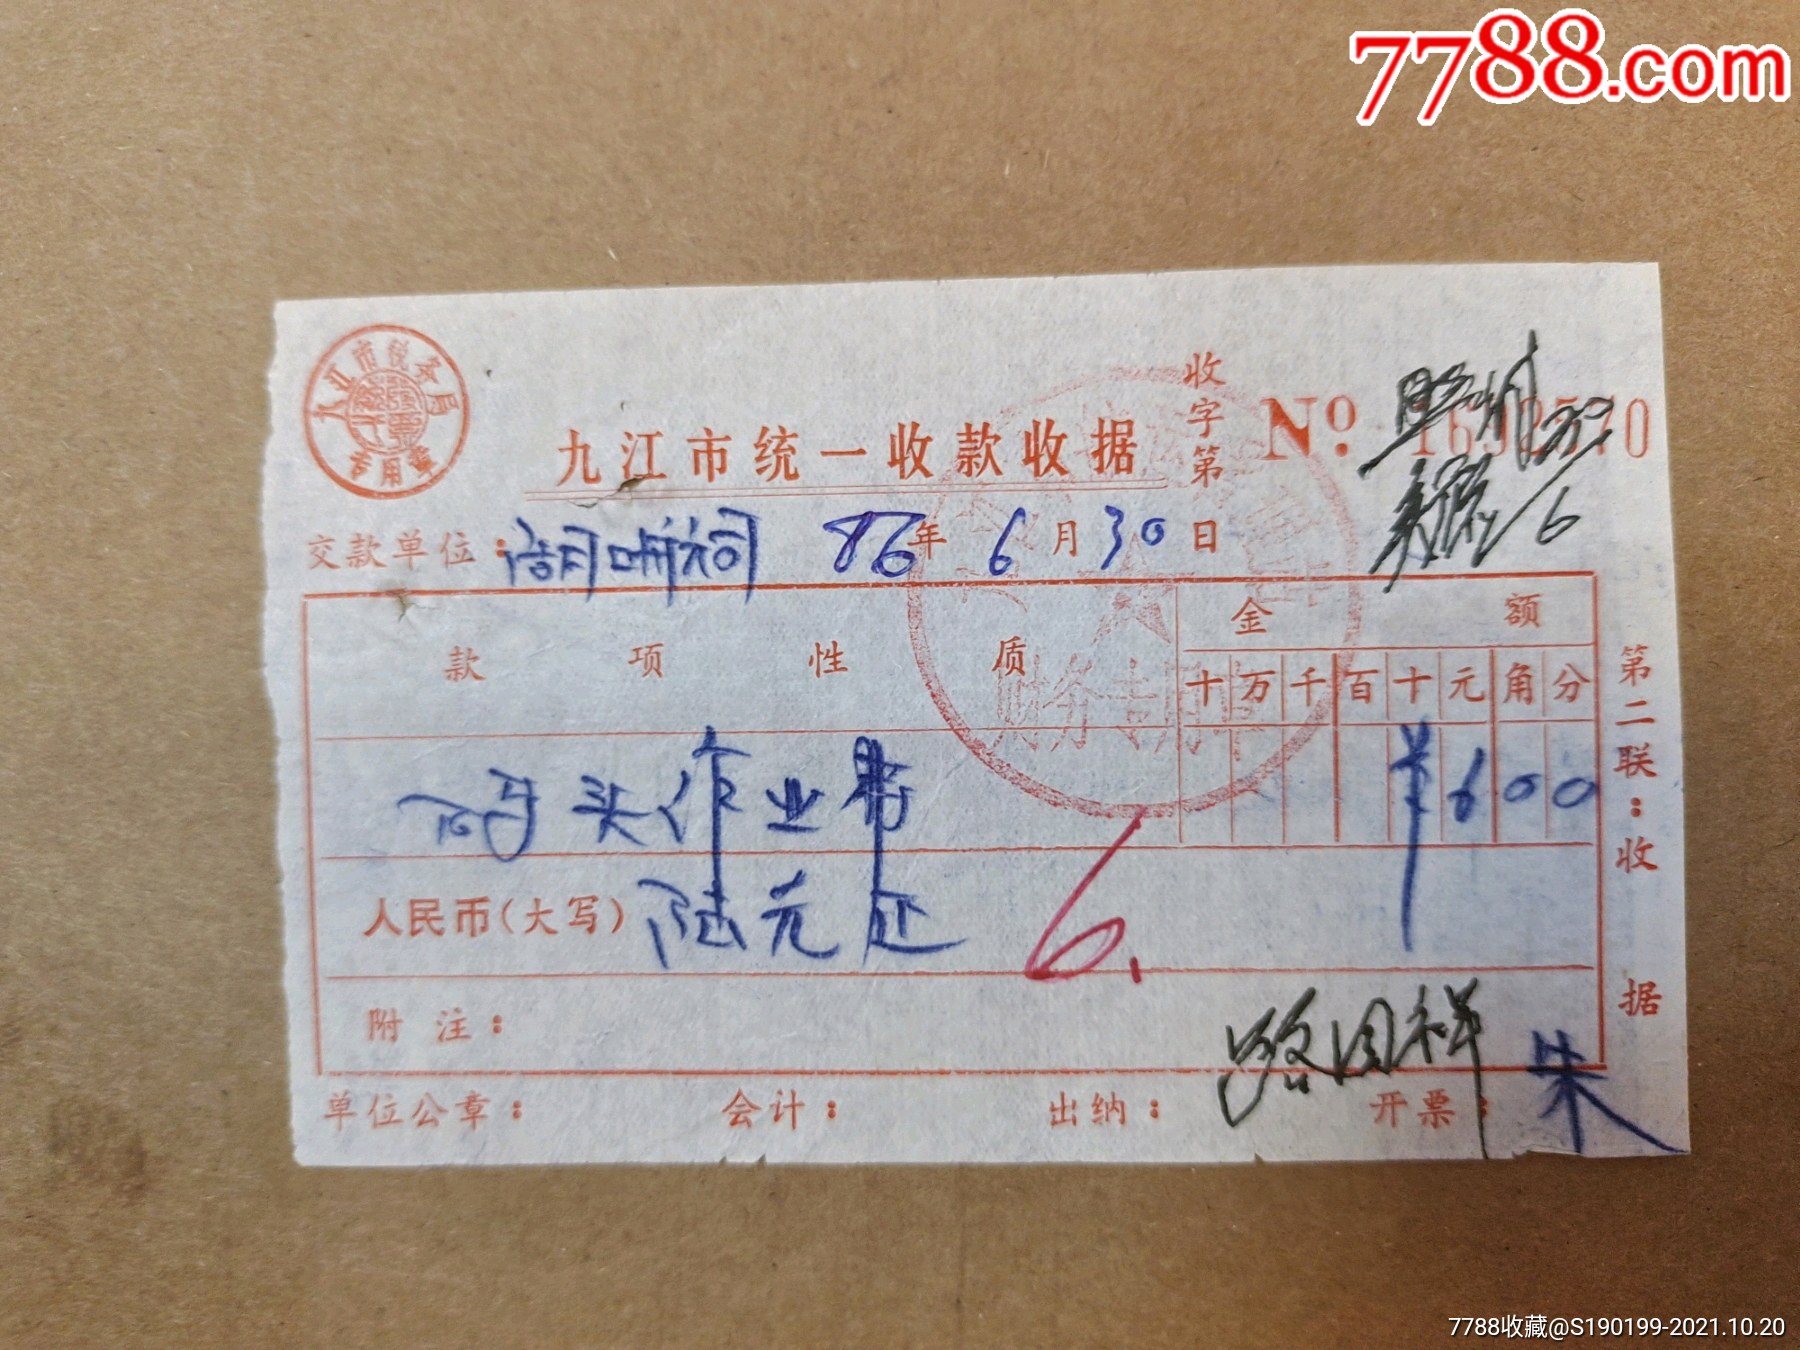 7788.com
九江市税务局
专用章
九江市统一收款收据
收字第
No
交款单位：
86年6月30日
款项性质
金额
十万千百十元角分
码头作业费
¥600
财务专用章
人民币（大写）陆元正
6.
附注：
单位公章：
会计：
出纳：
开票：
朱
第二联：收据
7788收藏@S190199-2021.10.20